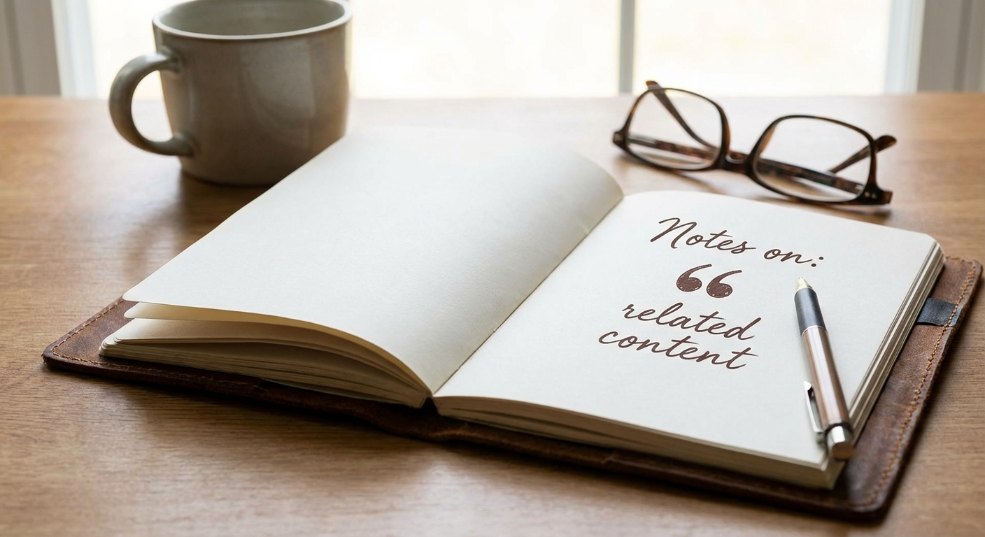 Notes on:
“
related
content